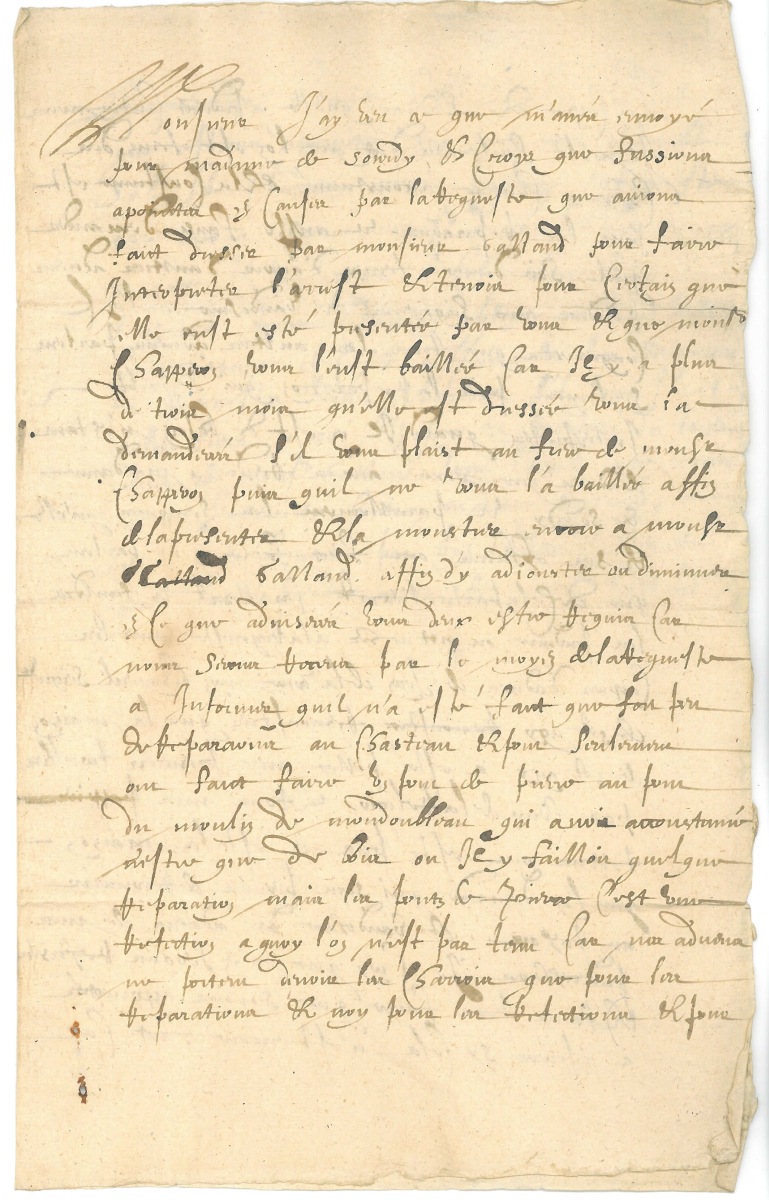 Monsieur J'ay veu ce que m'avés envoyé
pour madame de sourdy & Croye que fussions
apointés en Causes par la Requeste que avions
faict dresser par monsieur Galland pour faire
Interpreter l'arrest & tenois pour Certain que
elle eust esté presentée par vous & que monsr
Chapperon vous l'eust baillée Car Il y a plus
de trois mois qu'elle est dressée vous la
demanderés s'il vous plaist au frere de monsr
Chapperon puis quil ne vous l'a baillée affin
de la presenter & la monstrer encore a monsr
Galland affin d'y adjouster ou diminuer
en Ce que adviserés vous deux estre Requis Car
nous serons Receus par le moyen de la Requeste
a Informer quil n'a esté faict que fort peu
de Reparations au Chasteau & pour seulement
ont faict faire un pont de pierre au pont
du moulin de mondoubleau qui avoit accoustumé
n'estre que de bois ou Il y failloit quelque
Reparation mais les pontz de pierre C'est une
Refection a quoy l'on n'est pas tenu Car nos adveus
ne portent devoir les Charrois que pour les
Reparations & non pour les Refections & pour